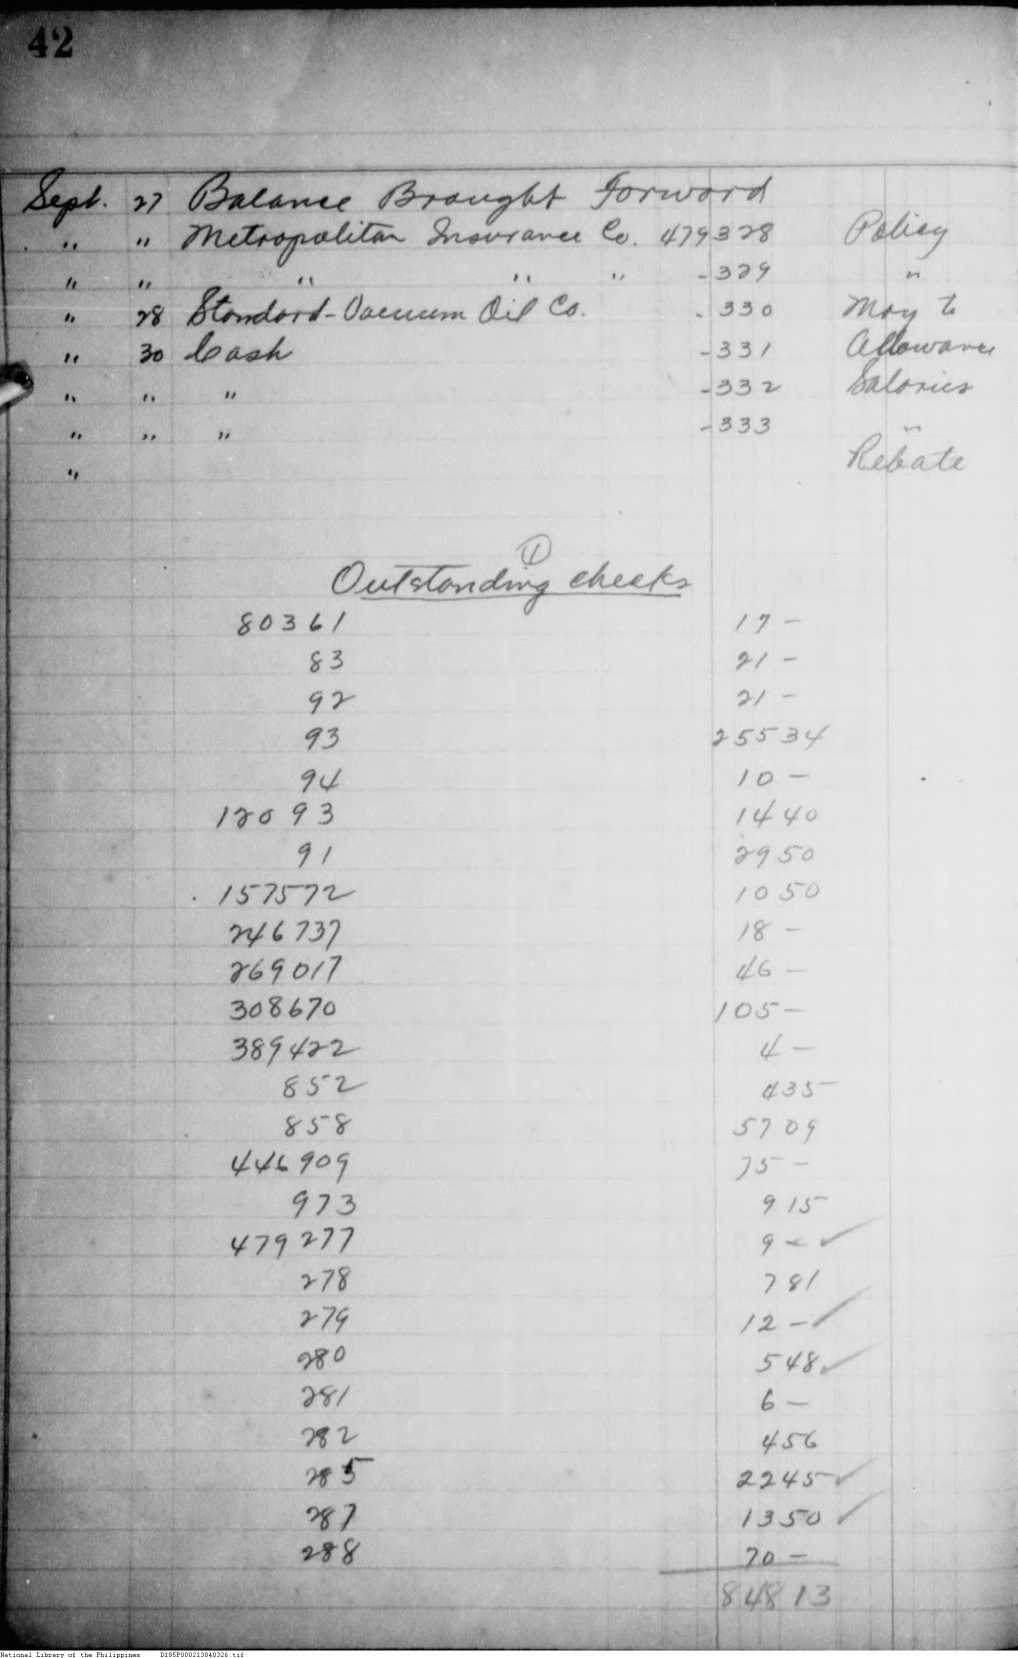 42
Sept. 27 Balance Brought Forword
" " Metropolitan Insurance Co. 479328 Policy
" " " " " -329 "
" 28 Standard-Vacuum Oil Co. -330 May to
" 30 Cash -331 Allowance
" " " -332 Salaries
" " " -333 "
" Rebate
1
Outstanding checks
80361 17 -
83 21 -
92 21 -
93 255 34
94 10 -
12093 14 40
91 29 50
157572 10 50
246737 18 -
269017 46 -
308670 105 -
389422 4 -
852 4 35
858 57 09
446909 75 -
973 9 15
479277 9 - ✓
278 7 81
279 12 - ✓
280 5 48 ✓
281 6 -
282 4 56
285 22 45 ✓
287 13 50 ✓
288 70 -
848 13
National Library of the Philippines D185P000213040326.tif